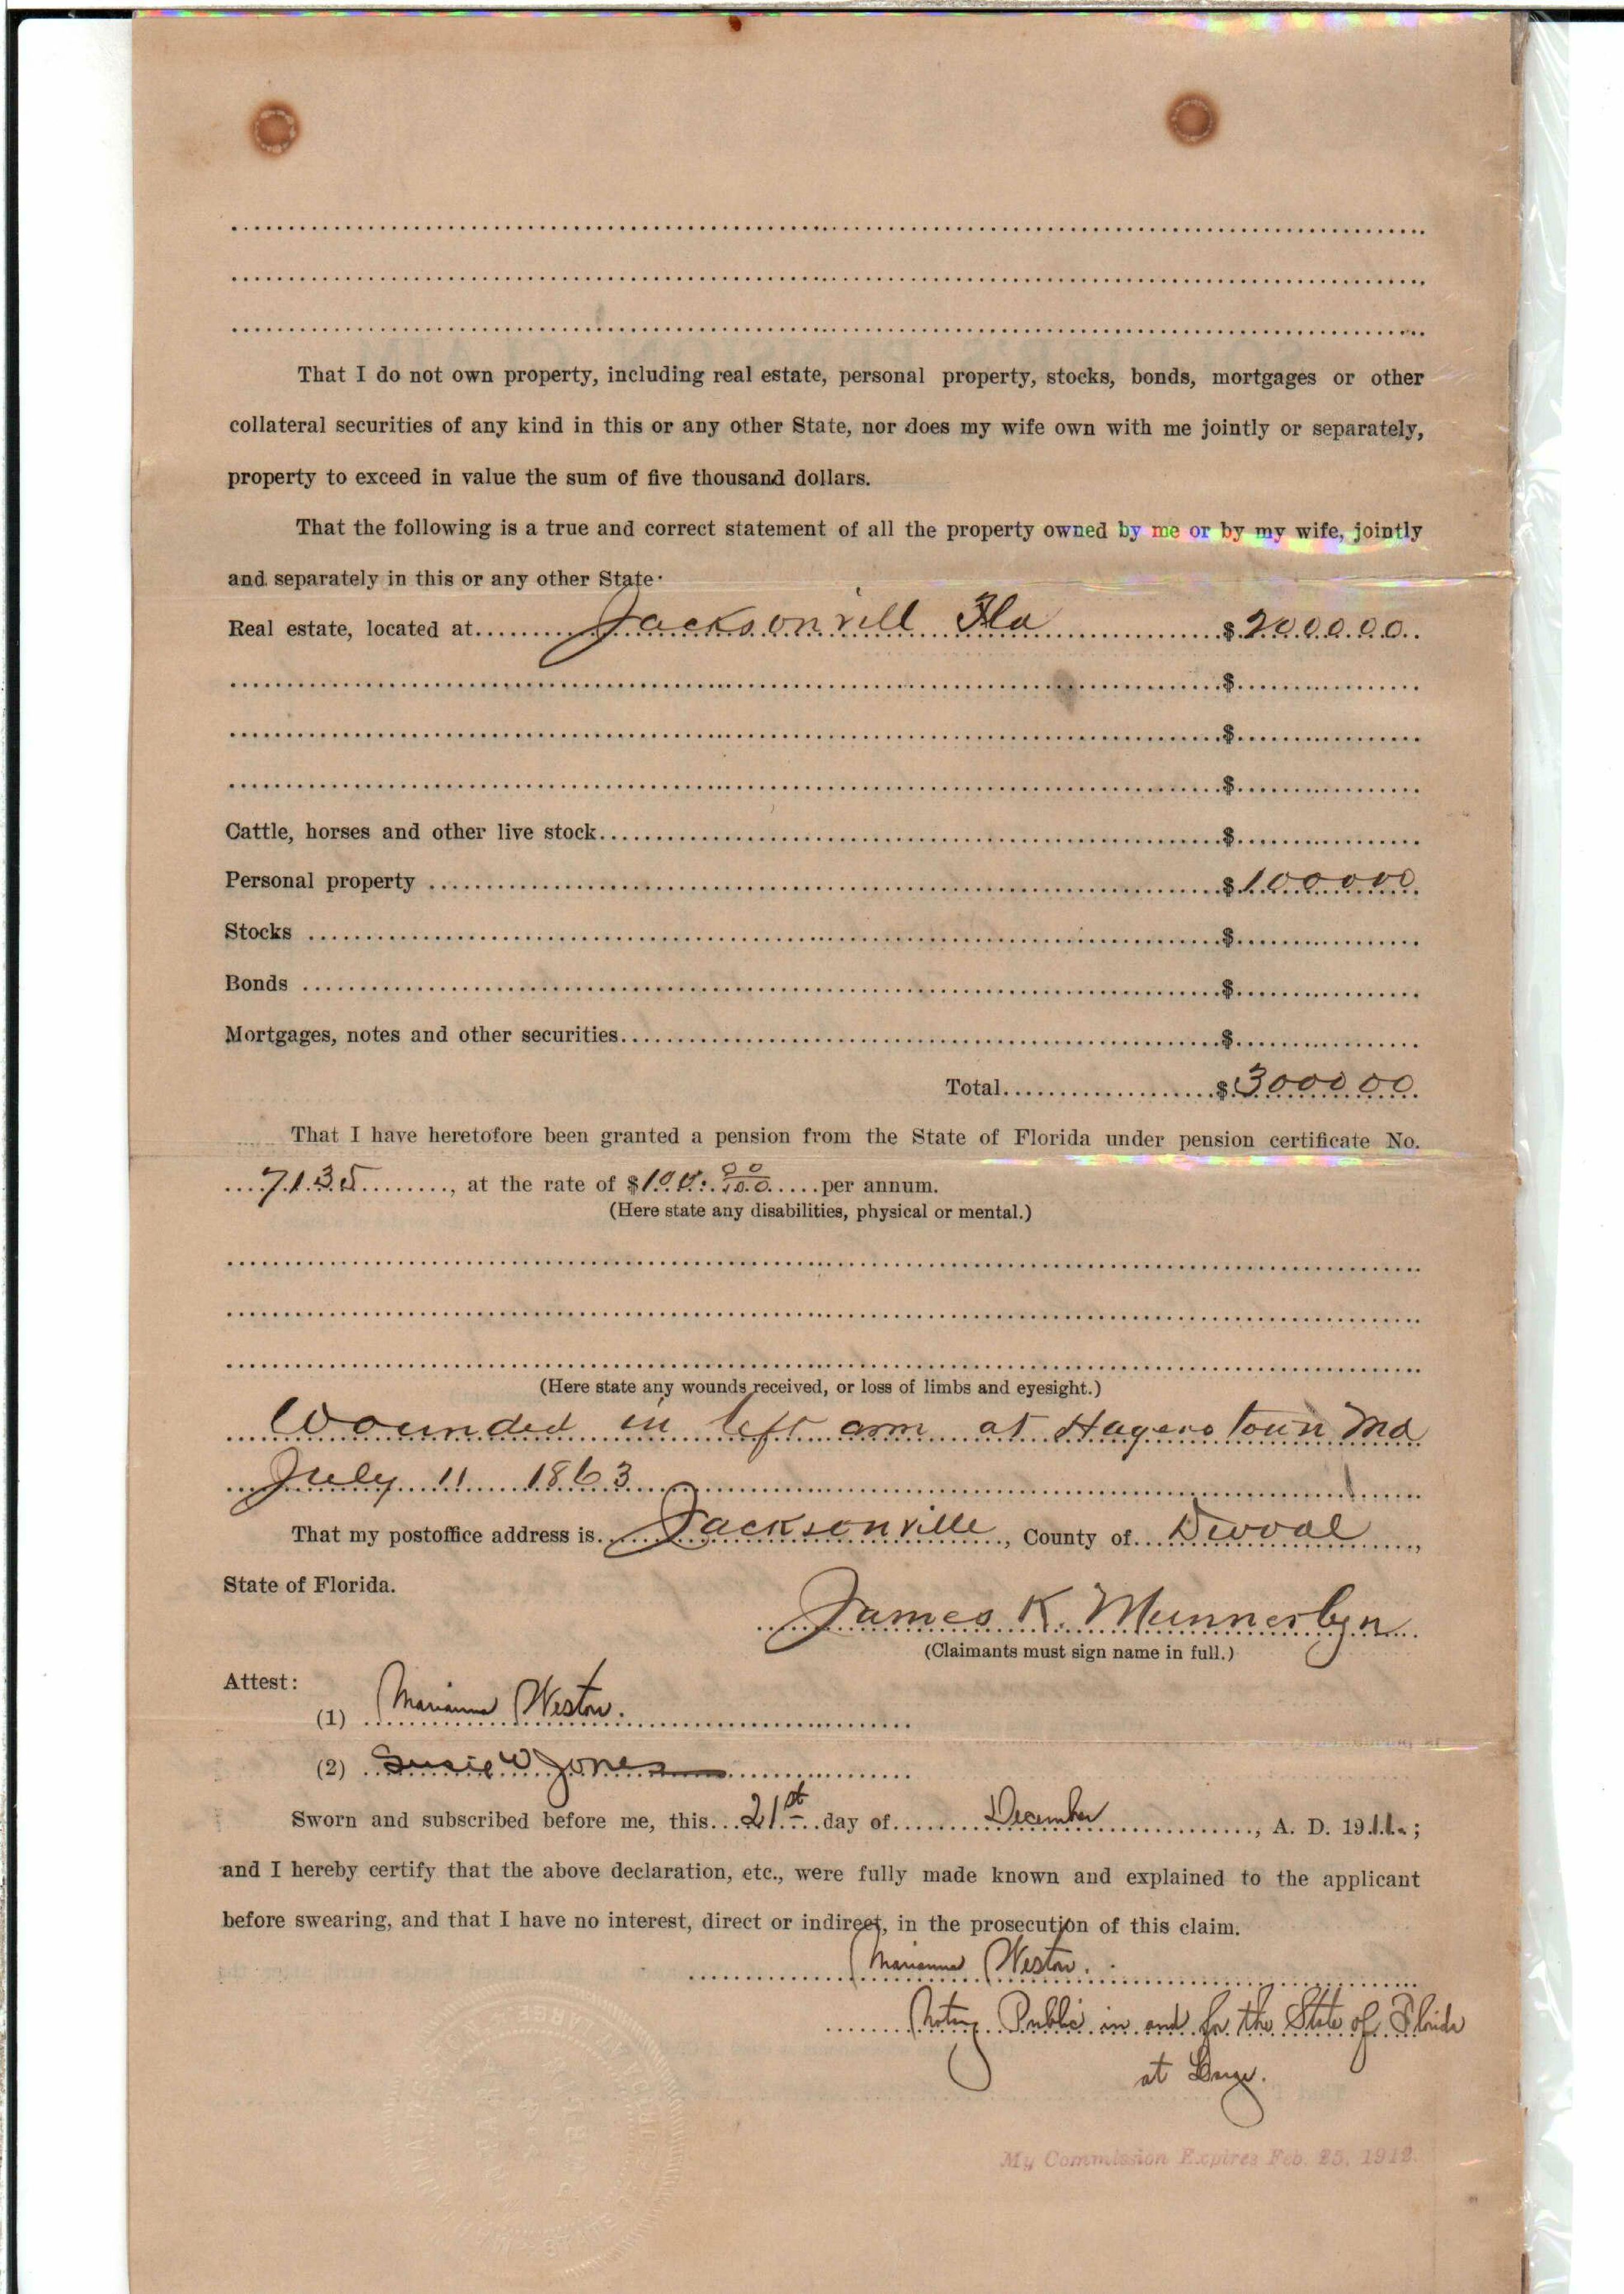 That I do not own property, including real estate, personal property, stocks, bonds, mortgages or other
collateral securities of any kind in this or any other State, nor does my wife own with me jointly or separately,
property to exceed in value the sum of five thousand dollars.
That the following is a true and correct statement of all the property owned by me or by my wife, jointly
and separately in this or any other State:
Real estate, located at Jacksonvill Fla $2000.00
$
$
$
Cattle, horses and other live stock $
Personal property $1000 00
Stocks $
Bonds $
Mortgages, notes and other securities $
Total $3000 00
That I have heretofore been granted a pension from the State of Florida under pension certificate No.
7135, at the rate of $100. 00/100 per annum.
(Here state any disabilities, physical or mental.)
(Here state any wounds received, or loss of limbs and eyesight.)
Wounded in left arm at Hagerstown Md
July 11 1863
That my postoffice address is Jacksonville, County of Duval,
State of Florida.
James K. Munnerlyn
(Claimants must sign name in full.)
Attest:
(1) Marianna Weston.
(2) Susie W Jones
Sworn and subscribed before me, this 21st day of December, A. D. 1911;
and I hereby certify that the above declaration, etc., were fully made known and explained to the applicant
before swearing, and that I have no interest, direct or indirect, in the prosecution of this claim.
Marianna Weston.
Notary Public in and for the State of Florida
at Large.
My Commission Expires Feb. 25, 1912.